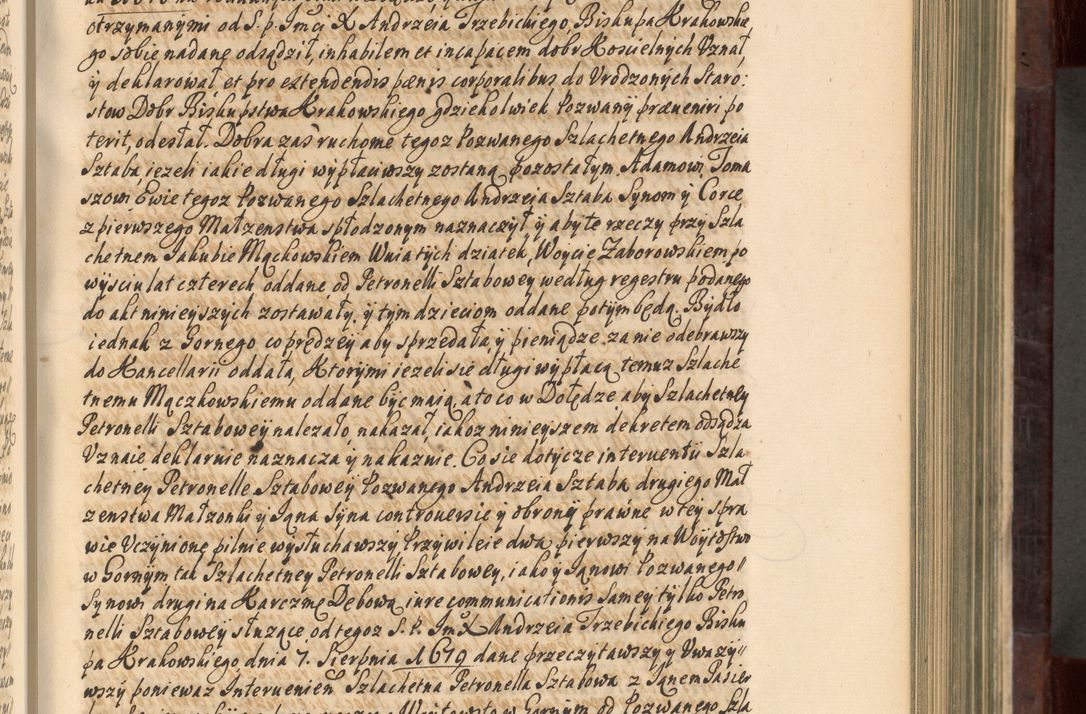 otrzymanymi od S. p. Jmci X Andrzeia Trzebickiego, Biskupa Krakowskie
go sobie nadane odsądził, inhabilem et incapacem dobr Koscielnych Uznał
ÿ deklarował, et pro extendendis pænis corporalibus do Urodzonych Staro:
stow Dobr Biskupstwa Krakowskiego gdziekolwiek Pozwany præueniri po
terit, odesłał. Dobra zas ruchome tegoz Pozwanego Szlachetnego Andrzeia
Sztaba, iezeli iakie długi wypłaiwszy zostaną, pozostałym Adamowi, Toma
szowi, Ewie tegoz Pozwanego Szlachetnego Andrzeia Sztaba Synom ÿ Corce
z pierwszego Małzenstwa spłodzonym naznaczył, ÿ aby te rzeczy przy Szla
chetnem Jakubie Mączkowskiem Wuia tych dziatek, Woycie Zaborowskiem po
wyściu lat czterech oddane, od Petronelli Sztabowey według regestru podanego
do akt ninieyszych zostawały, ÿ tym dzieciom oddane potym będą. Bydło
iednak z Gornego co prędzey aby sprzedała, ÿ pieniądze za nie odebrawszy
do Kancellarii oddała, Ktorymi iezeli sie długi wypłacą, temuz Szlache
tnemu Mączkowskiemu oddane być maią, a to co w Dołędze aby Szlachetney
Petronelli Sztabowey nalezało, nakazał, iakoz ninieyszem dekretem odsądza
Uznaie deklaruie naznacza ÿ nakazuie. Co sie dotycze interuentÿ Szla
chetney Petronelle Sztabowey Pozwanego Andrzeia Sztaba drugiego Mał
zenstwa Małzonki ÿ Jana Syna controuersie ÿ obrony prawne w tey spra
wie Uczynione pilnie wysłuchawszy Przywileie dwa, pierwszy na Woytostwo
w Gornym tak Szlachetney Petronelli Sztabowey, iako ÿ Janowi Pozwanego
Synowi drugi na Karczmę Dębową iure communicationis samey tylko Petro
nelli Sztabowey słuzące, od tegoz S. P. Jmci X Andrzeia Trzebickiego Bisku
pa Krakowskiego, dnia 7. Sierpnia 1679 dane przeczytawszy ÿ Uwazy
wszy poniewaz Interuenien Szlachetna Petronella Sztabowa z Janem Pasier
Woytowstwo w Gornym od Pozwanego Szla